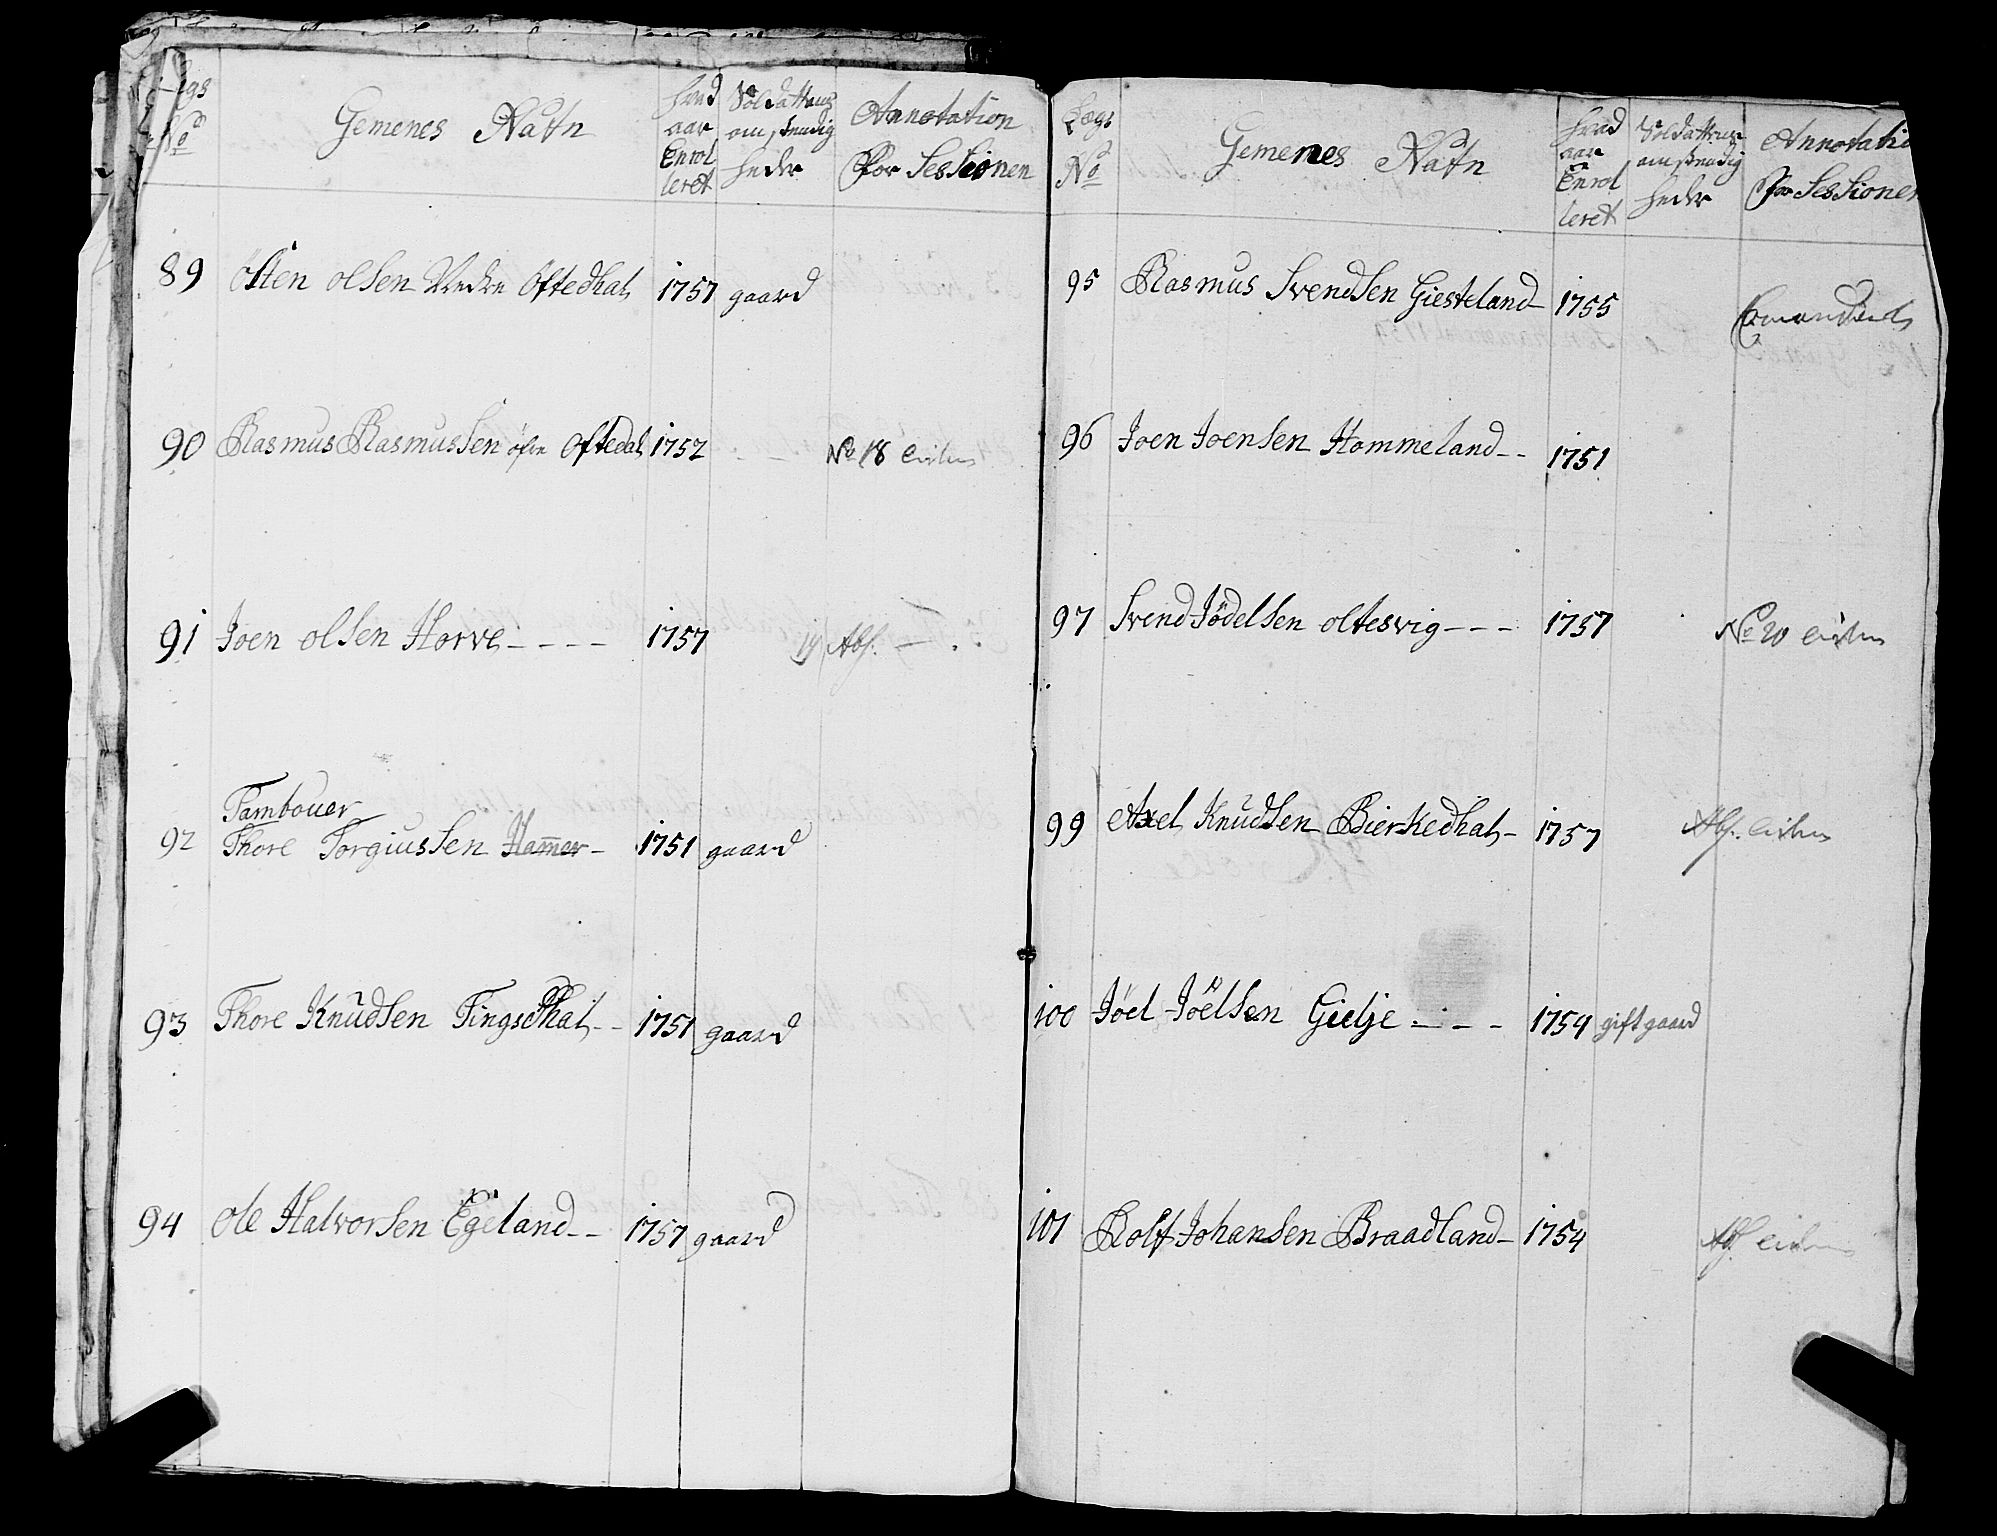 Lægs No
Gemenes Nafn
hvad aar Enrolleret
Soldattens omstendigheder
Annotation for Sessionen
89 Østen olsen Nedre Oftedhal 1757 gaard
90 Rasmus Rasmussen øfre Oftedal 1752 - - No 18
91 Joen olsen Horve - - - - 1757 19 Abs. -
Tambouer
92 Thore Torgiussen Hamer - 1751 gaard
93 Thore Knudsen Tingsdhal - - 1751 gaard
94 Ole Halvorsen Egeland - - 1757 gaard
Lægs No
Gemenes Nafn
hvad aar Enrolleret
Soldattens omstendigheder
Annotation for Sessionen
95 Rasmus Svendsen Giesteland - 1755
96 Joen Joensen Hommeland - - 1751
97 Svend Jödelsen oltesvig - - - 1757 No 20
99 Axel Knudsen Bierkedhal - 1757 Abs.
100 Jöel Jöelsen Gielje - - - 1754 gift gaard
101 Rolf Johansen Braadland - 1754 Abs.